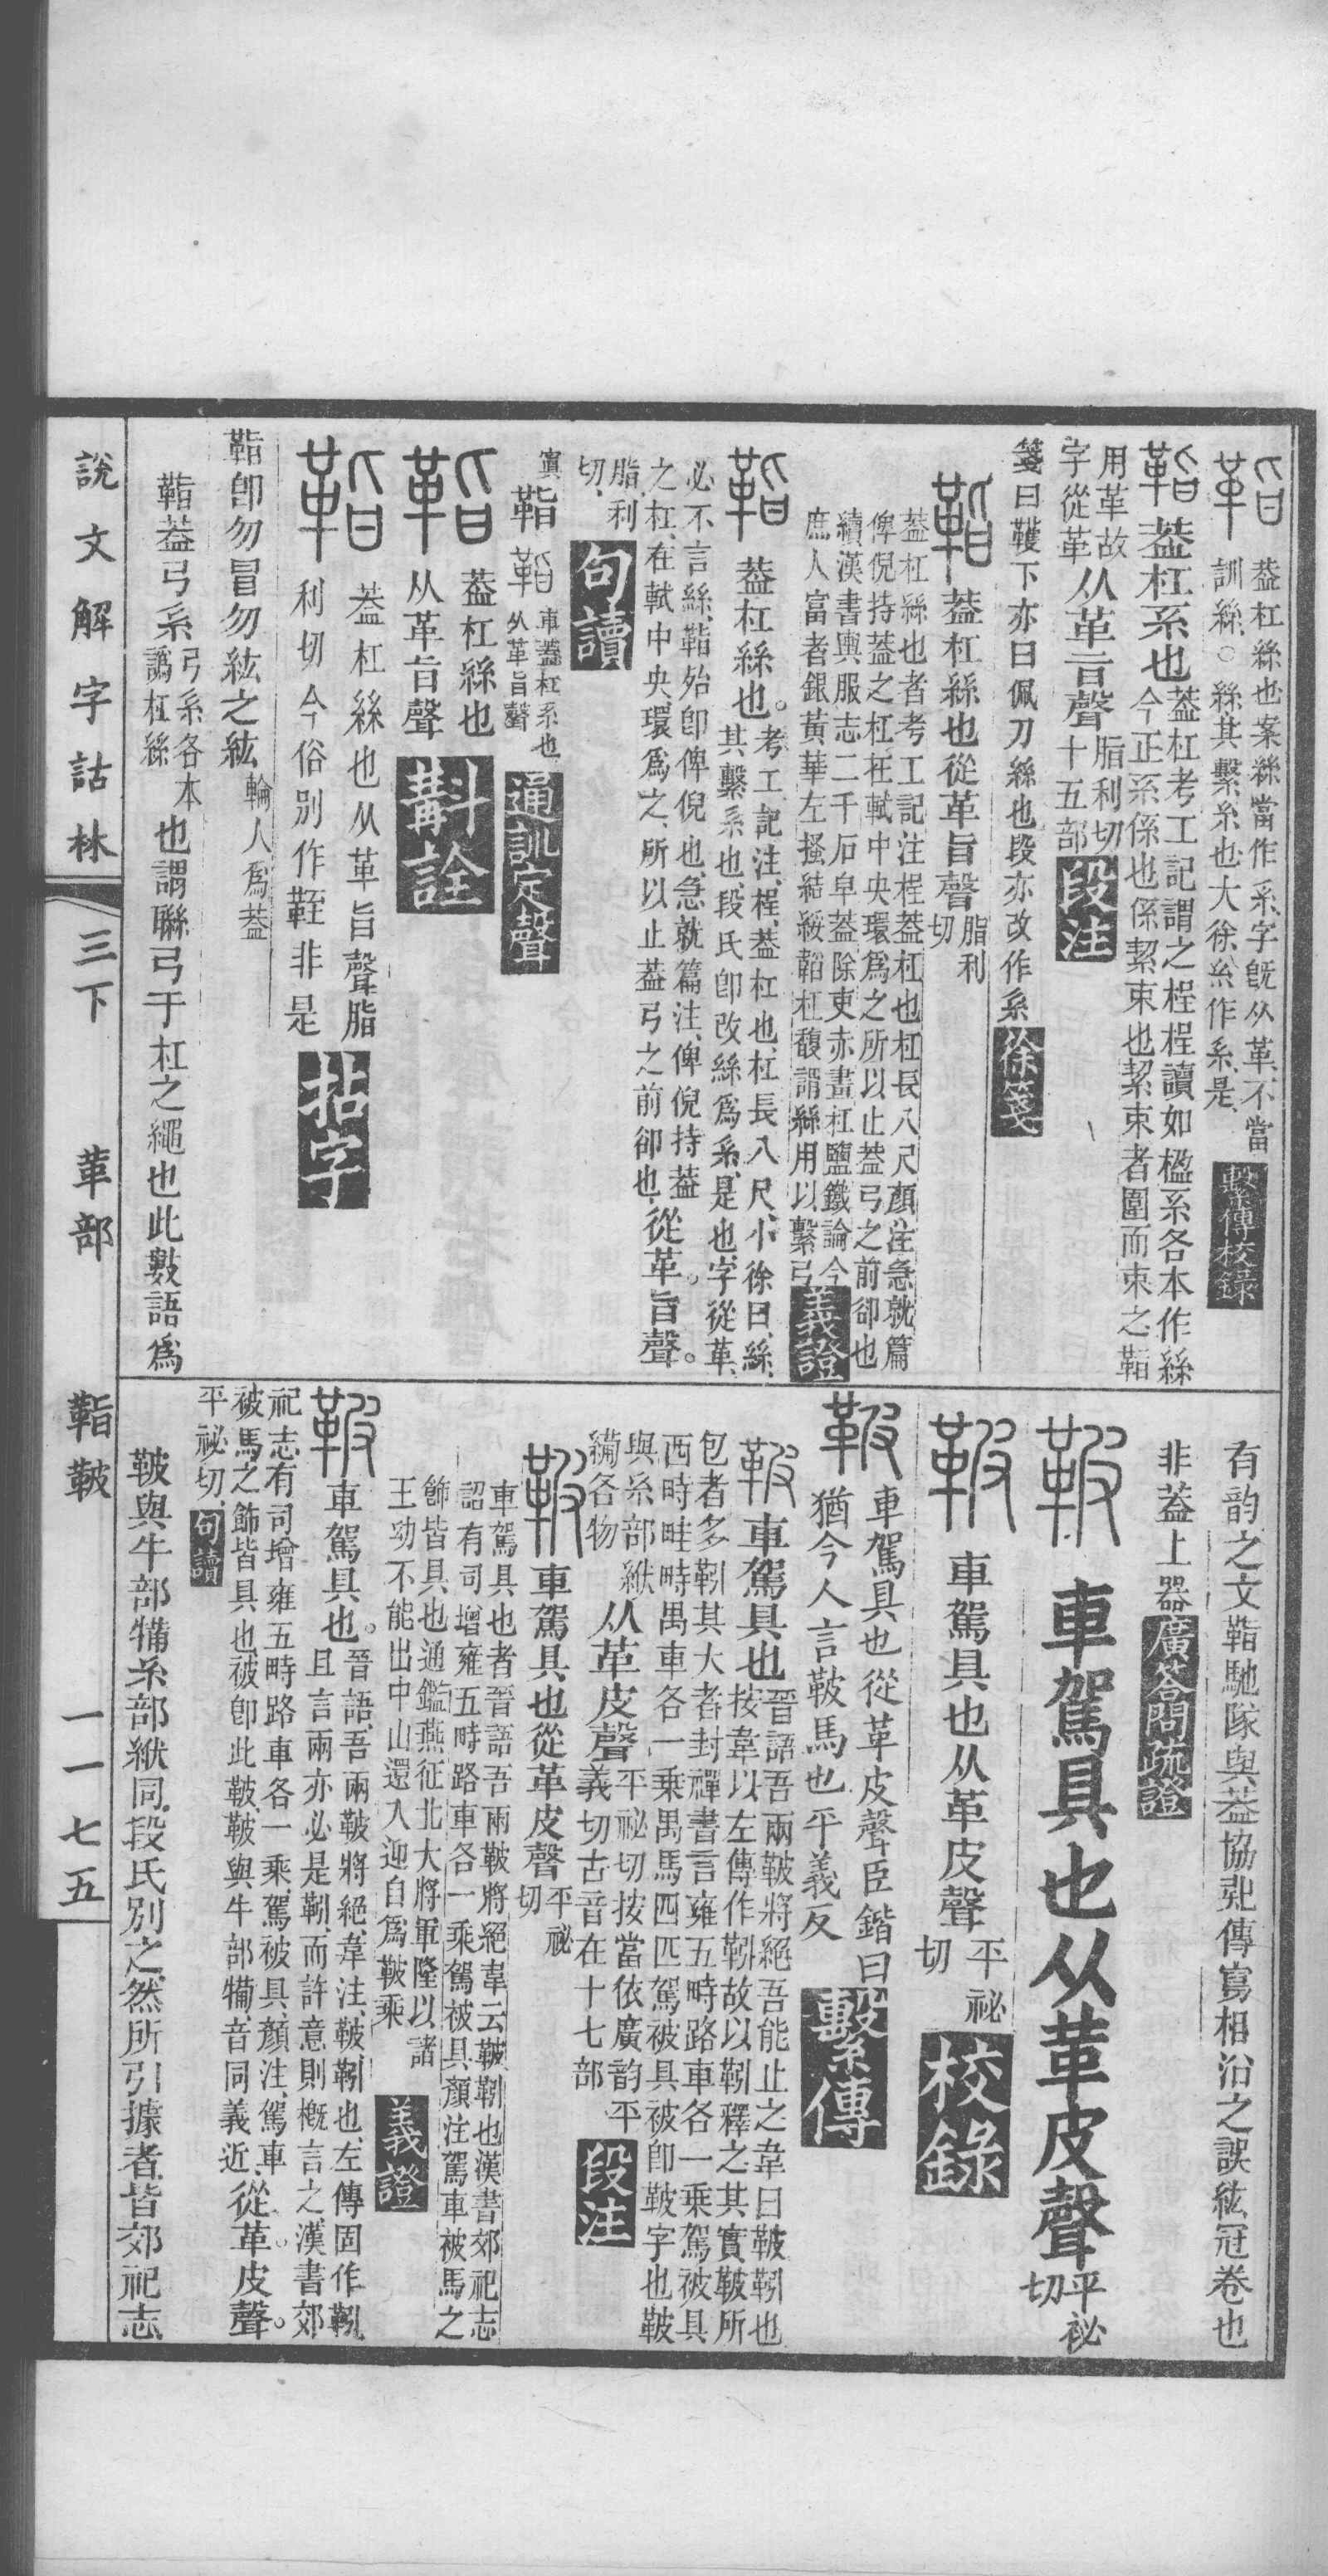 蓋杠絲也案絲當作系字旣从革不當
訓絲○絲其繫糸也大徐糸作系是
繫傳校錄
蓋杠系也
蓋杠考工記謂之桯桯讀如楹系各本作絲
今正系係也係絜束也絜束者圍而束之鞊
用革故
字從革
从革旨聲
脂利切
十五部
段注
箋曰韄下亦曰佩刀絲也段亦改作系
徐箋
蓋杠絲也從革旨聲
脂利
切
蓋杠絲也者考工記注桯蓋杠也杠長八尺顏注急就篇
俾倪持蓋之杠在軾中央環爲之所以止蓋弓之前卻也
續漢書輿服志二千石皁蓋除吏赤畫杠鹽鐵論今
庶人富者銀黃華左搔結綏韜杠馥謂絲用以繫弓
義證
蓋杠絲也。
考工記注、桯、蓋杠也、杠長八尺、小徐曰、絲、
其繫系也、段氏卽改絲爲系、是也、字從革、
必不言絲、鞊殆卽俾倪也、急就篇注、俾倪持蓋
之杠、在軾中央、環爲之、所以止蓋弓之前卻也、
從革。旨聲。
脂利
切、
句讀
車蓋杠系也
从革旨聲
通訓定聲
蓋杠絲也
从革旨聲
斠詮
蓋杠絲也从革旨聲脂
利切今俗別作鞋非是
拈字
卽勿冒勿紘之紘
輪人爲蓋
蓋弓系
弓系各本
譌杠絲
也謂聯弓于杠之繩也此數語爲
有韵之文鞊馳隊與蓋協弛傳寫相沿之誤紘冠卷也
非蓋上器
廣答問疏證
車駕具也从革皮聲
平祕
切
車駕具也从革皮聲
平祕
切
校錄
車駕具也從革皮聲臣鍇曰
猶今人言鞁馬也平義反
繫傳
車駕具也
晉語吾兩鞁將絕吾能止之韋曰鞁靷也
按韋以左傳作靷故以靷釋之其實鞁所
包者多靷其大者封禪書言雍五畤路車各一乘駕被具
西畤畦畤禺車各一乘禺馬四匹駕被具被卽鞁字也鞁
與糸部紴
从革皮聲
平祕切按當依廣韵平
義切古音在十七部
段注
車駕具也從革皮聲
平祕
切
車駕具也者晉語吾兩鞁將絕韋云鞁靷也漢書郊祀志
詔有司增雍五畤路車各一乘駕被具顏注駕車被馬之
飾皆具也通鑑燕征北大將軍隆以諸
王功不能出中山還入迎自爲鞁乘
義證
車駕具也。
晉語、吾兩鞁將絕、韋注、鞁靷也、左傳固作靷、
且言兩、亦必是靷、而許意則槪言之、漢書郊
祀志、有司增雍五畤路車各一乘、駕被具、顏注、駕車
被馬之飾皆具也、被卽此鞁、鞁與牛部犕、音同義近、
從革。皮聲。
平祕切、
句讀
鞁與牛部犕糸部紴同、段氏別之、然所引據者、皆郊祀志
說文解字詁林
三下
革部
鞊鞁
一一七五